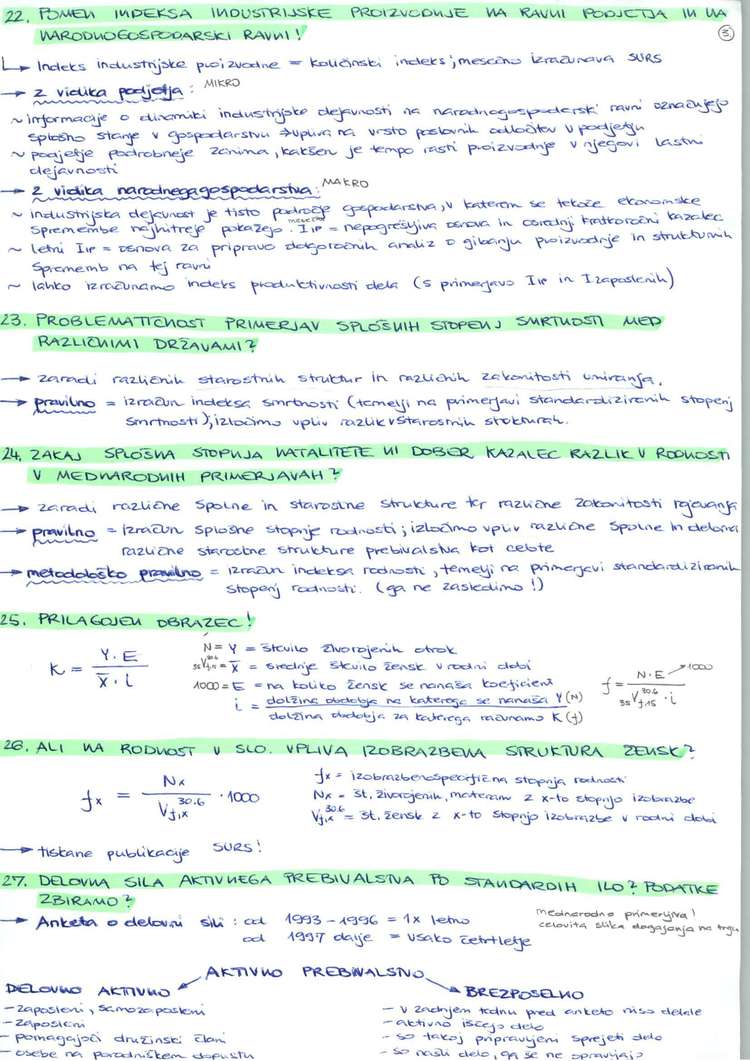 22. POMEN INDEKSA INDUSTRIJSKE PROIZVODNJE NA RAVNI PODJETJA IN NA
NARODNOGOSPODARSKI RAVNI!
3
Indeks industrijske proizvodne = količinski indeks; mesečno izračunava SURS
→ z vidika podjetja: MIKRO
~ informacije o dinamiki industrijske dejavnosti na narodnogospodarski ravni označujejo
splošno stanje v gospodarstvu → vpliva na vrsto poslovnih odločitev v podjetju
~ podjetje podrobneje zanima, kakšen je tempo rasti proizvodnje v njegovi lastni
dejavnosti
→ z vidika narodnega gospodarstva: MAKRO
~ industrijska dejavnost je tisto področje gospodarstva, v katerem se tekoče ekonomske
spremembe najhitreje pokažejo. mesečni IIP = nepogrešljiva osnova in osrednji kratkoročni kazalec
~ letni IIP = osnova za pripravo dolgoročnih analiz o gibanju proizvodnje in strukturnih
sprememb na tej ravni
~ lahko izračunamo indeks produktivnosti dela (s primerjavo IIP in Izaposlenih)
23. PROBLEMATIČNOST PRIMERJAV SPLOŠNIH STOPENJ SMRTNOSTI MED
RAZLIČNIMI DRŽAVAMI?
→ zaradi različnih starostnih struktur in različnih zakonitosti umiranja.
→ pravilno = izračun indeksa smrtnosti (temelji na primerjavi standardiziranih stopenj
smrtnosti); izločimo vpliv razlik v starostnih strukturah.
24. ZAKAJ SPLOŠNA STOPNJA NATALITETE NI DOBER KAZALEC RAZLIK V RODNOSTI
V MEDNARODNIH PRIMERJAVAH?
→ zaradi različne spolne in starostne strukture ter različne zakonitosti rojevanja
→ pravilno = izračun splošne stopnje rodnosti; izločimo vpliv različne spolne in delno
različne starostne strukture prebivalstva kot celote
→ metodološko pravilno = izračun indeksa rodnosti, temelji na primerjavi standardiziranih
stopenj rodnosti. (ga ne zasledimo!)
25. PRILAGOJEN OBRAZEC!
K = Y · E / X̄ · i
N = Y = število živorojenih otrok
35Vf,15 30.6 = X̄ = srednje število žensk v rodni dobi
1000 = E = na koliko žensk se nanaša koeficient
i = dolžina obdobja na katerega se nanaša Y (N) / dolžina obdobja za katerega računamo K (f)
f = N · E → 1000 / 35Vf,15 30.6 · i
26. ALI NA RODNOST V SLO. VPLIVA IZOBRAZBENA STRUKTURA ŽENSK?
fx = Nx / Vf,x 30.6 · 1000
fx = izobrazbenospecifična stopnja rodnosti
Nx = št. živorojenih, materam z x-to stopnjo izobrazbe
Vf,x 30.6 = št. žensk z x-to stopnjo izobrazbe v rodni dobi
→ tiskane publikacije SURS!
27. DELOVNA SILA AKTIVNEGA PREBIVALSTVA PO STANDARDIH ILO? PODATKE
ZBIRAMO?
→ Anketa o delovni sili: od 1993-1996 = 1x letno
od 1997 dalje = vsako četrtletje
mednarodno primerljiva!
celovita slika dogajanja na trgu
AKTIVNO PREBIVALSTVO
DELOVNO AKTIVNO
- zaposleni, samozaposleni
- zaposleni
- pomagajoči družinski člani
- osebe na porodniškem dopustu
BREZPOSELNO
- v zadnjem tednu pred anketo niso delale
- aktivno iščejo delo
- so takoj pripravljeni sprejeti delo
- so našli delo, ga še ne opravljajo